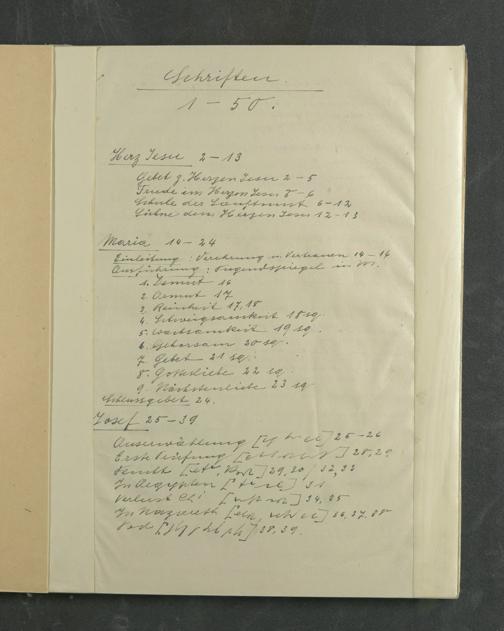 Schriften.
1 – 50.
Herz Jesu 2 – 13
Gebet z. Herzen Jesu 2 – 5
Friede im Herzen Jesu 5 – 6
Schule der Sanftmut 6 – 12
Sühne dem Herzen Jesu 12 – 13
Maria 14 – 24
Einleitung: Verehrung u. Vertrauen 14 – 16
Ausführung: Tugendspiegel in M.
1. Demut 16
2. Armut 17
3. Reinheit 17, 18
4. Schweigsamkeit 18 sq.
5. Wachsamkeit 19 sq.
6. Gehorsam 20 sq.
7. Gebet 21 sq.
8. Gottesliebe 22 sq.
9. Nächstenliebe 23 sq
Schlussgebet 24.
Josef 25 – 39
Auserwählung 25 – 26
Erste Prüfung 28, 29
29, 30 / 32, 33
In Aegypten 31
Verlust 34, 35
In Nazareth 36, 37, 38
Tod 38, 39.